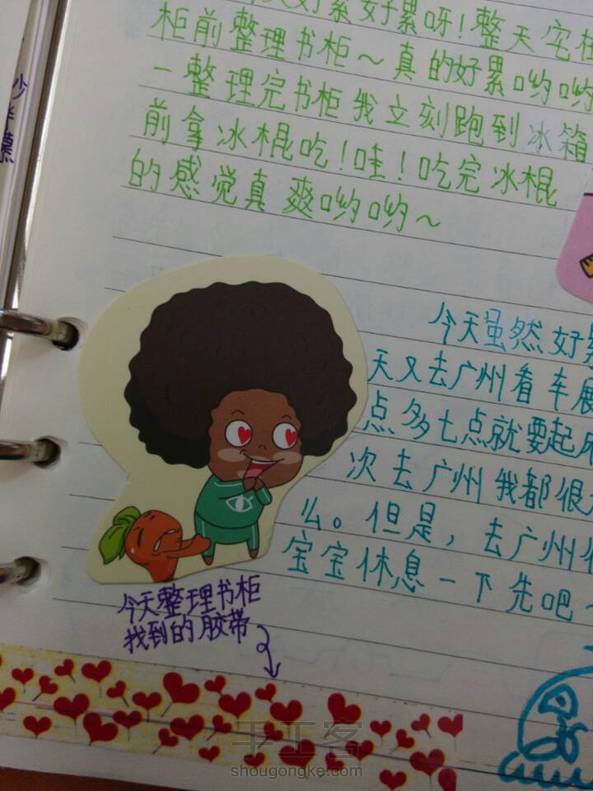 好累好累呀！整天宅在
柜前整理书柜～真的好累哟哟
一整理完书柜我立刻跑到冰箱
前拿冰棍吃！哇！吃完冰棍
的感觉真爽哟哟～
今天虽然好累
天又去广州看车展
点多七点就要起床
次去广州我都很
么。但是，去广州
宝宝休息一下先吧～
今天整理书柜
找到的胶带
手工客
shougongke.com